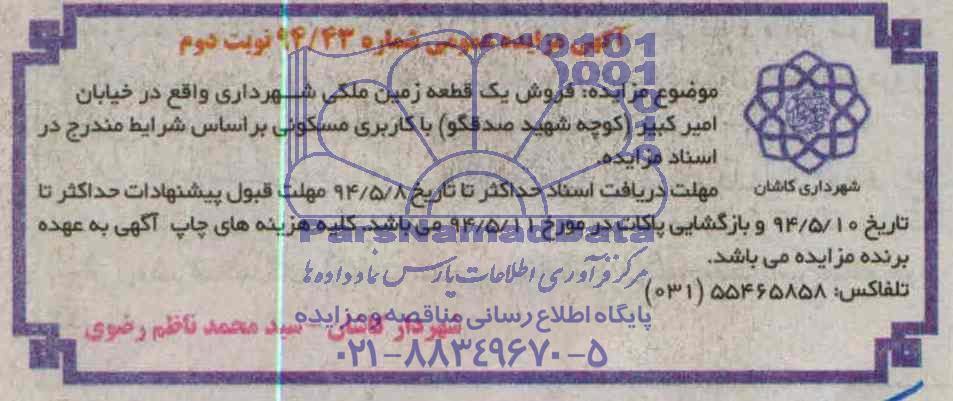 آگهی مزایده عمومی شماره ۹۴/۴۳ نوبت دوم
موضوع مزایده: فروش یک قطعه زمین ملکی شهرداری واقع در خیابان
امیر کبیر (کوچه شهید صدقگو) با کاربری مسکونی بر اساس شرایط مندرج در
اسناد مزایده.
شهرداری کاشان
مهلت دریافت اسناد حداکثر تا تاریخ ۹۴/۵/۸ مهلت قبول پیشنهادات حداکثر تا
تاریخ ۹۴/۵/۱۰ و بازگشایی پاکات در مورخ ۹۴/۵/۱۱ می باشد. کلیه هزینه های چاپ آگهی به عهده
برنده مزایده می باشد.
تلفاکس: ۵۵۴۶۵۸۵۸ (۰۳۱)
شهردار کاشان - سید محمد ناظم رضوی
ParsNamadData
مرکز فرآوری اطلاعات پارس نماد داده ها
پایگاه اطلاع رسانی مناقصه و مزایده
۰۲۱-۸۸۳۴۹۶۷۰-۵